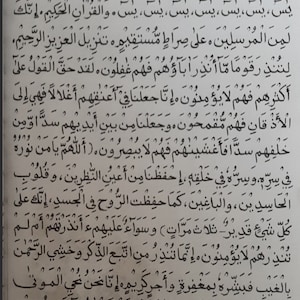 يس، يس، يس، يس، يس، يس، يس، والقرآن الحكيم، إنّك
لمن المرسلين، على صراط مّستقيم، تنزيل العزيز الرّحيم،
لتنذر قوما مّا أنذر اٰباۤؤهم فهم غٰفلون، لقد حقّ القول على
أكثرهم فهم لا يؤمنون، إنّا جعلنا في أعنٰقهم أغلٰلا فهي إلى
الأذقان فهم مّقمحون، وجعلنا من بين أيديهم سدّا وّمن
خلفهم سدّا فأغشينٰهم فهم لا يبصرون، (اللّٰهمّ يا من نوره
في سرّه، وسرّه في خلقه، إحفظنا من أعين النّٰظرين، وقلوب
الحاسدين، والباغين، كما حفظت الرّوح في الجسد، إنّك على
كلّ شيء قدير، ثلاث مرّات) وسواۤء عليهم ءأنذرتهم أم لم
تنذرهم لا يؤمنون، إنّما تنذر من اتّبع الذّكر وخشي الرّحمٰن
بالغيب فبشّره بمغفرة وّأجر كريم، إنّا نحن نحي الموتى